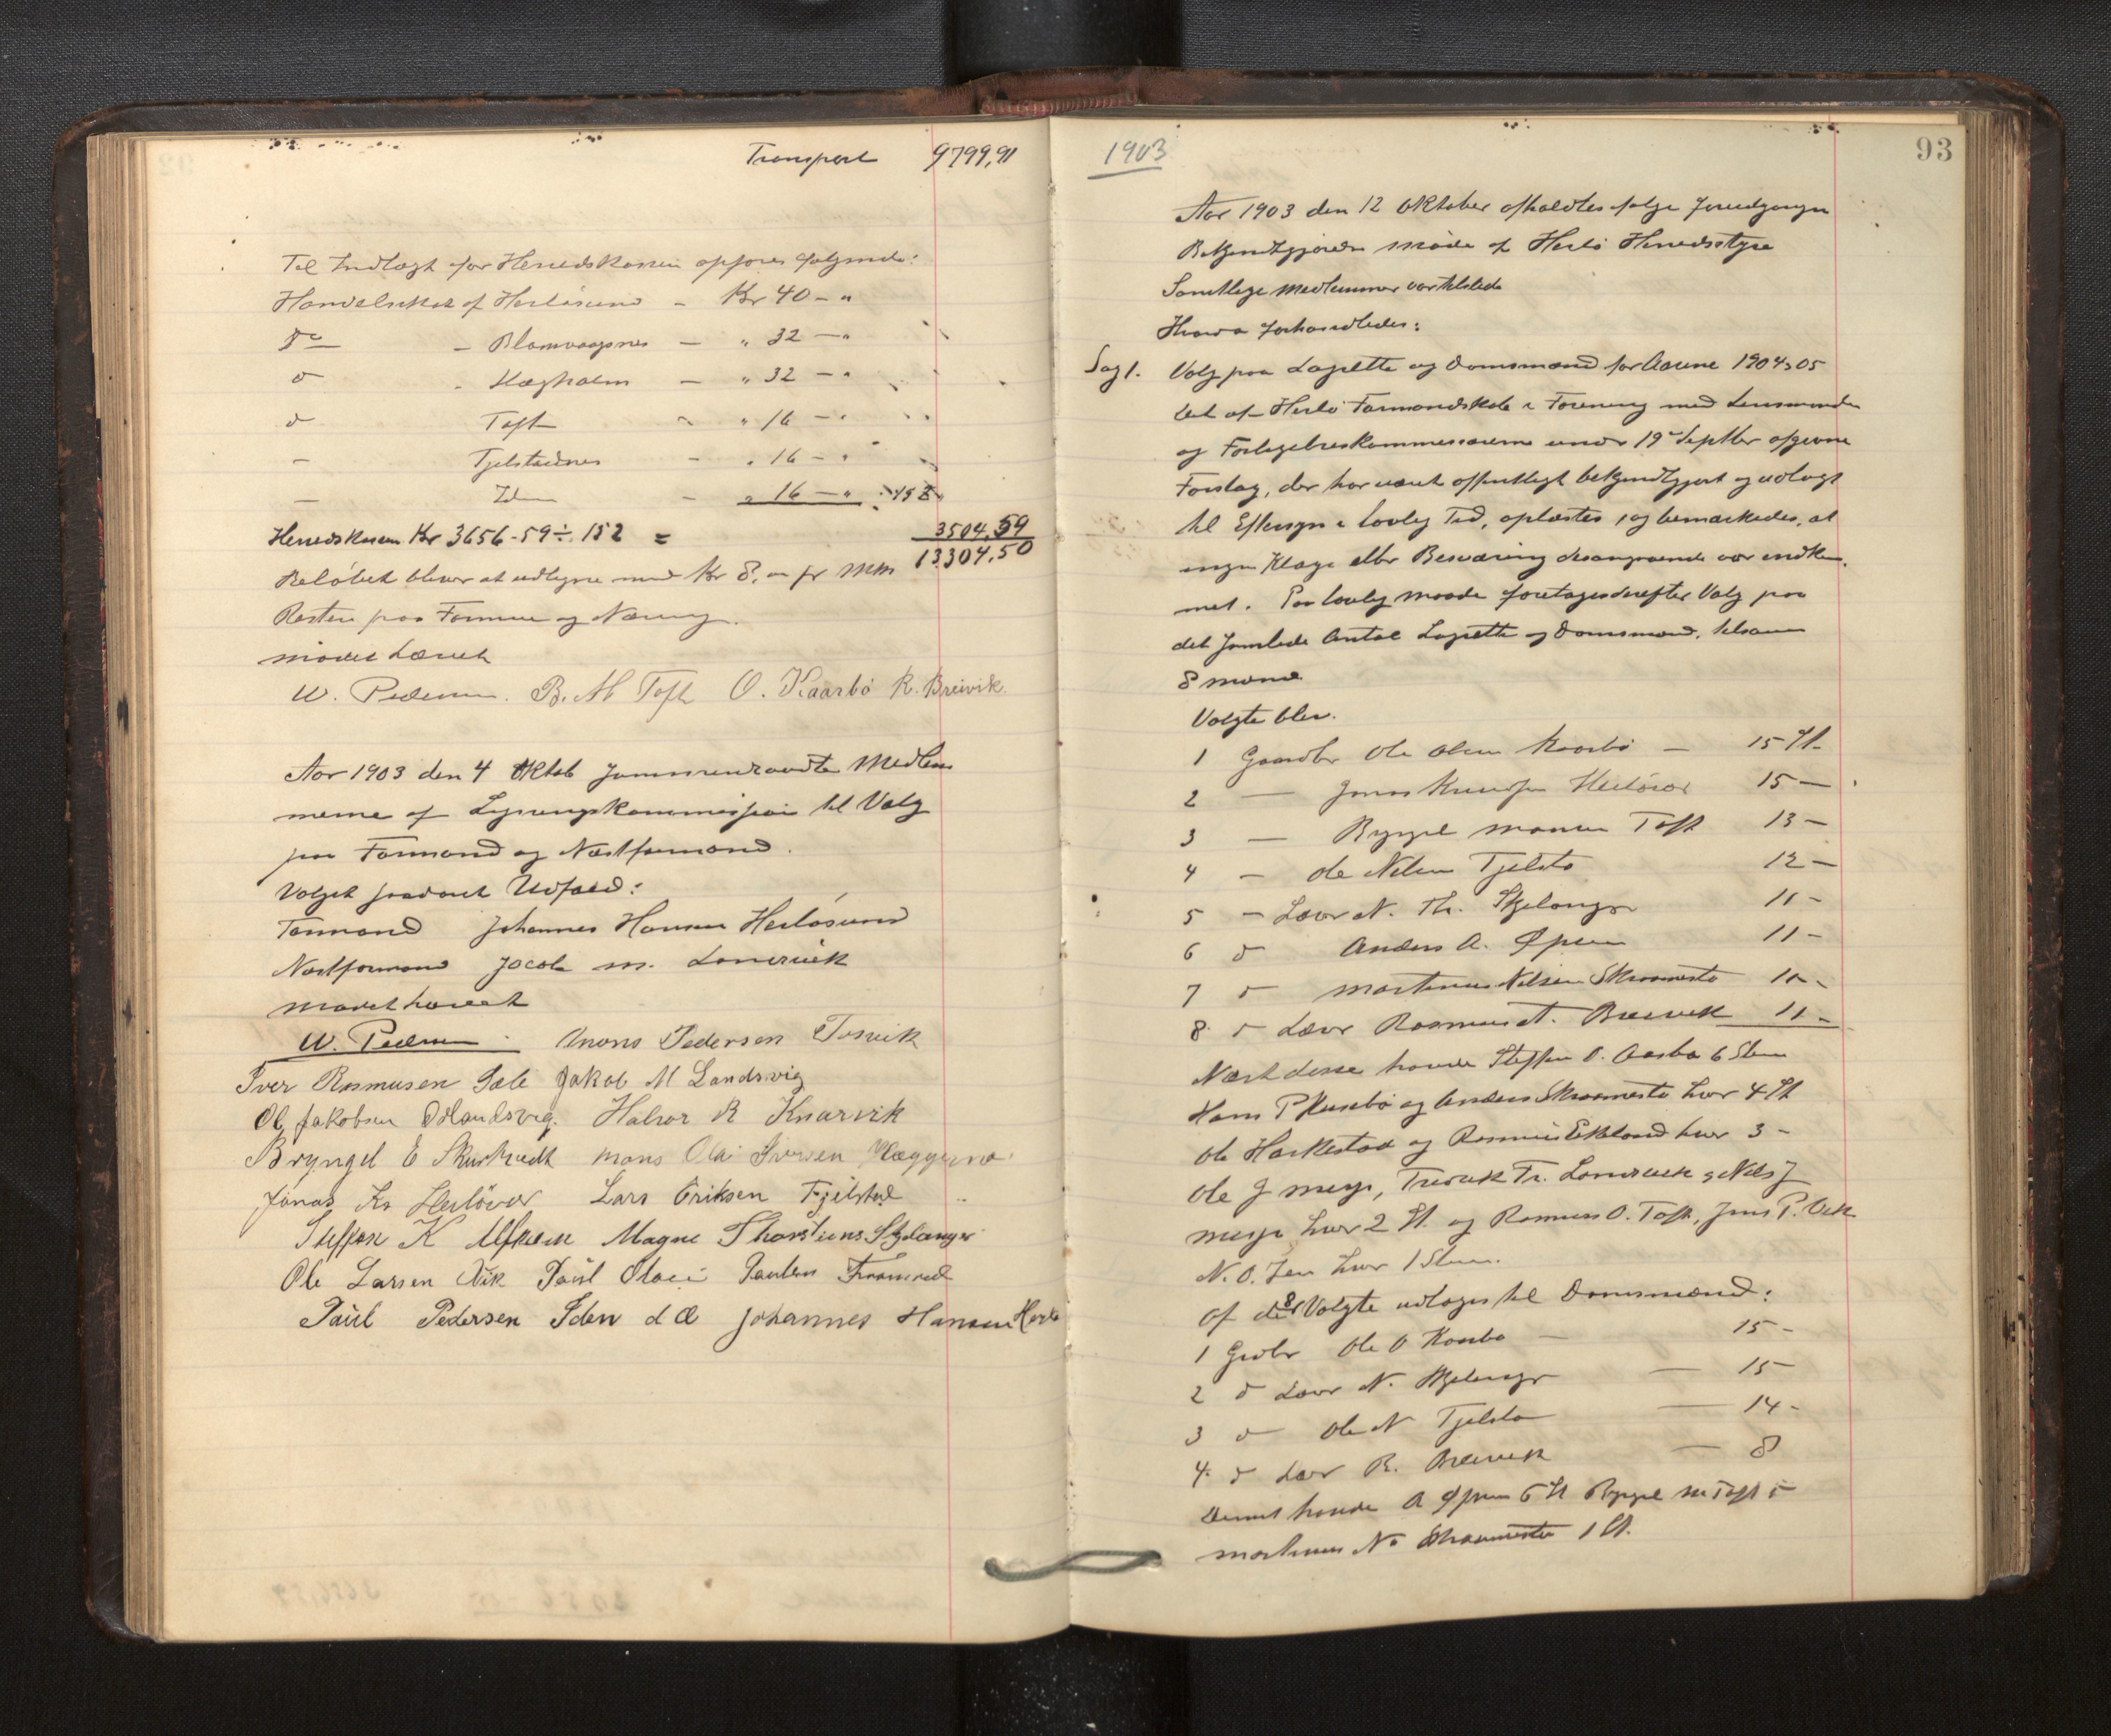 Transport 9799,91
Til Indtægt for Herredskassen opføres følgende:
Handelsskat af Herløsund - Kr 40 - "
Do - Blomvaagnes - " 32 - "
d - Hægholm - " 32 - "
d Toft - " 16 - "
- Tjelstadnes - " 16 - "
- Iden - " 16 - " : 152
Herredskassen Kr 3656-59 ÷ 152 = 3504,59
13304,50
Beløbet bliver at udligne med Kr 8, " pr Mm
Resten paa Formue og Næring.
mødet hævet
W. Pedersen. B. M Toft O. Kaarbø R. Breivik
Aar 1903 den 4 Oktob sammentraadte Medlem
merne af Ligningskommissjon til Valg
paa Formand og Næstformand.
Valget saadant Udfald:
Formand Johannes Hansen Herløsund
Næstformand Jacob M. Landsvik
mødet hævet
W. Pedersen. Mons Pedersen
Iver Rasmusen Sæle Jakob M Landsvig
Ole Jakobsen Halvor R Knarvik
Bryngel E Mons Olai Iversen Hæggernæ
Jonas Kn Herløvær Lars Eriksen Fjelstad
Steffen K Magne Thorstiens Skjelanger
Ole Larsen Vik Paul Olai Paulsen
Paul Pedersen Iden d Æ Johannes Hansen Herlø
1903
93
Aar 1903 den 12 Oktober afholdtes ifølge forudgangen
Bekjendtgjørelse møde af Herlø Herredsstyre
Samtlige medlemmer var tilstede
Hvorda forhandledes:
Sag 1. Valg paa Lagrette og Domsmænd for Aarene 1904 & 05
Det af Herlø Formandskab i Forening med Lensmanden
og Forligelseskommissærerne under 19de Septber afgivne
Forslag, der har været offentligt bekjendtgjort og udlagt
til Eftersyn i lovlig Tid, oplæstes, og bemærkedes, at
ingen Klage eller Besværing desangaaende var indkom
met. Paa lovlig Maade foretoges derefter Valg paa
det samlede Antal Lagrette og Domsmænd, tilsam
8 mænd
Valgte blev.
1 Gaardbr Ole Olsen Kaarbø - 15 St.
2 - Jonas Knudsen Herløvær 15 -
3 - Bryngel Monsen Toft 13 -
4 - Ole Nilsen Tjelsta 12 -
5 - Lavr N. Th. Skjelanger 11 -
6 d Anders A. 11 -
7 d Martinus Nilsen Skraamestø 11 -
8 d Lavr Rasmus st. Breivik 11 -
Næst disse havde Steffen O. Aasbø 6 Stem
Hans P Husebø og Anders Skraamestø hver 4 St
Ole Harkestad og Rasmus Eikeland hver 3 -
Ole J , Fredrik Fr. Landsvik & Nils J
hver 2 St. og Rasmus O. Toft, Jens P. Vik
N. O. hver 1 Stem.
Af de 8 Valgte udtoges til Domsmænd:
1 Grdbr Ole O Kaarbø - 15 -
2 d Lavr N. Skjelanger - 15
3 d Ole N Tjelsta - 14 -
4. d Lavr R. Breivik - 8
Dernæst havde A 6 St Bryngel M Toft 5
Martinus N. Skraamestø 1 St.